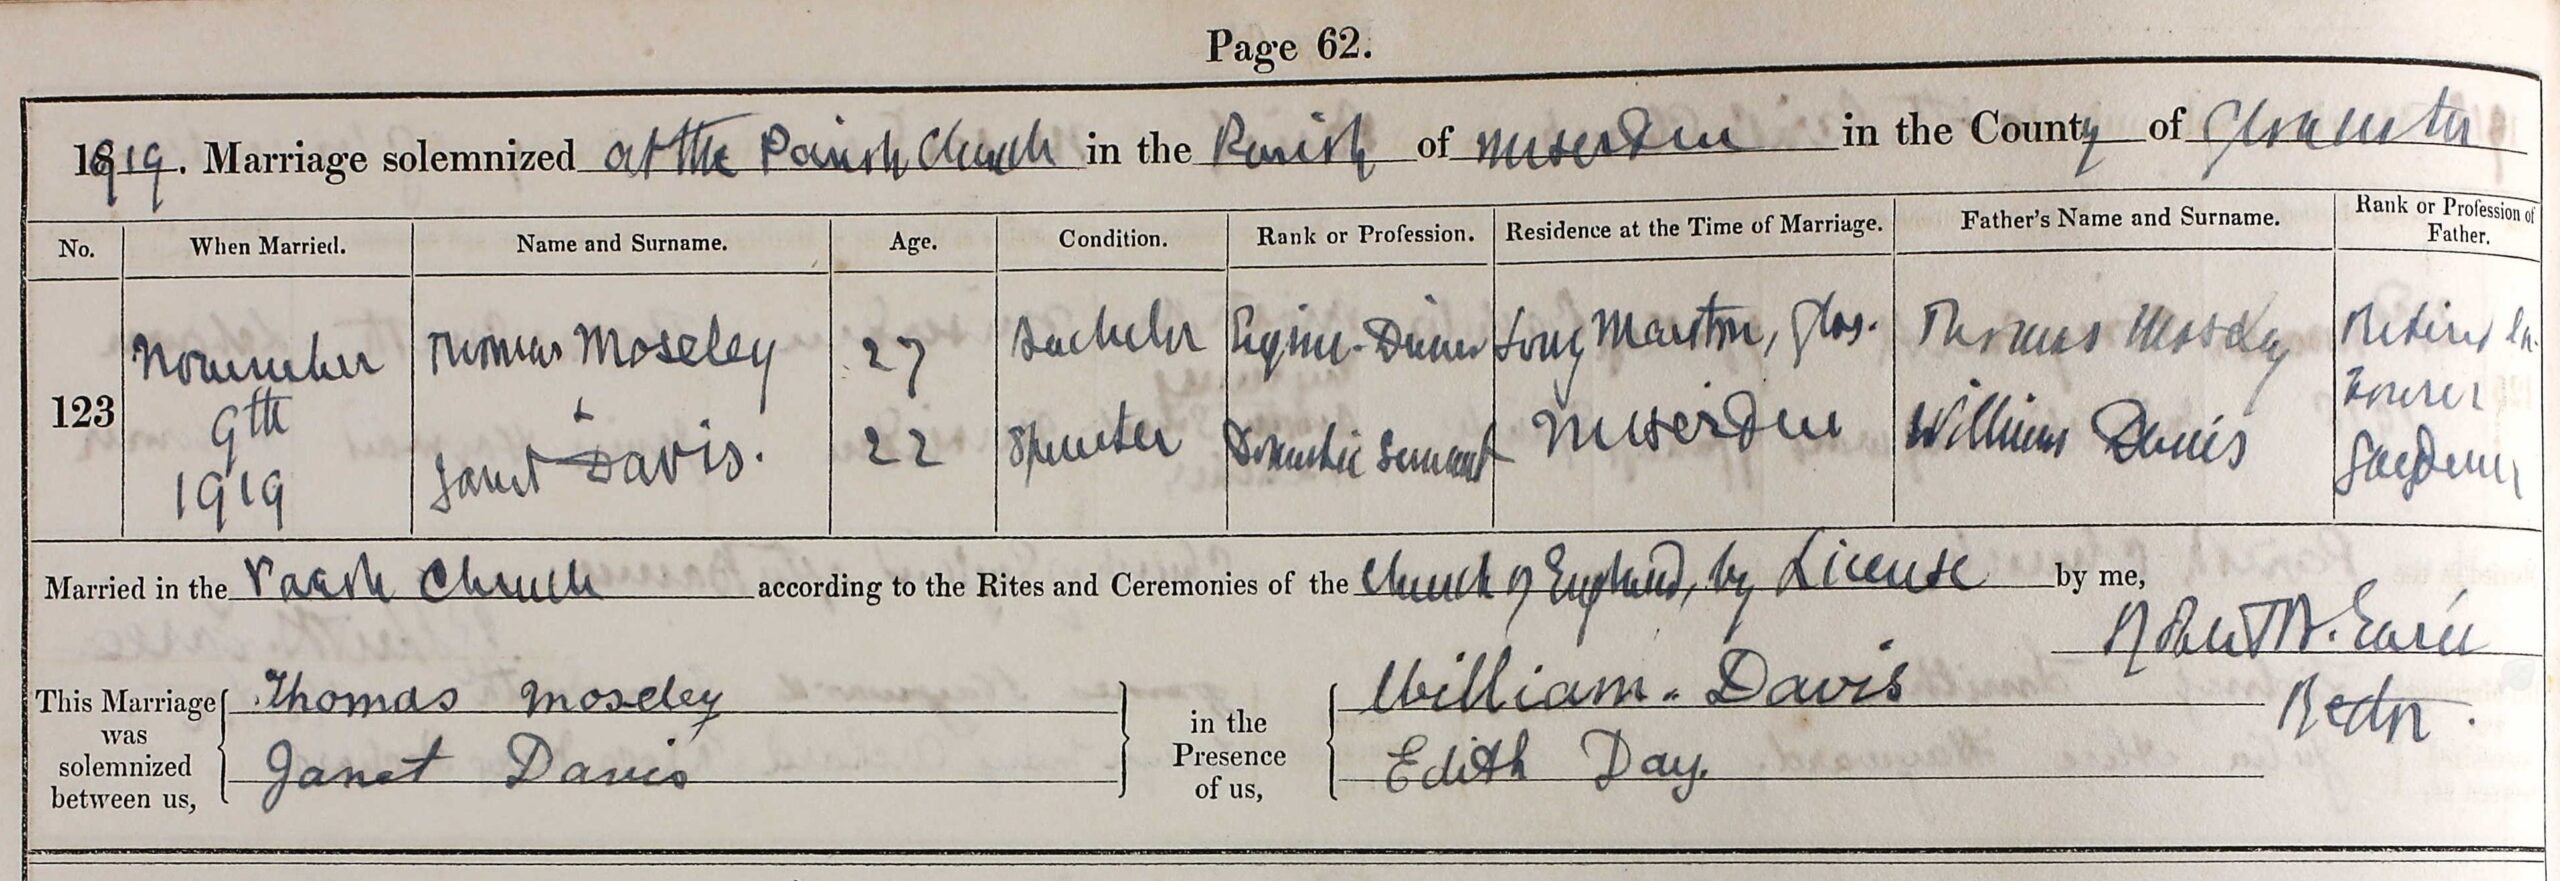 Page 62.
1919. Marriage solemnized at the Parish Church in the Parish of Miserden in the County of Gloucester
No. When Married. Name and Surname. Age. Condition. Rank or Profession. Residence at the Time of Marriage. Father's Name and Surname. Rank or Profession of Father.
123 November 9th 1919 Thomas Moseley 27 Bachelor Engine-Driver Long Marston, Glos. Thomas Moseley Retired La-bourer
& Janet Davis. 22 Spinster Domestic Servant Miserden William Davis Gardener
Married in the Parish Church according to the Rites and Ceremonies of the Church of England, by License by me,
This Marriage was solemnized between us, Thomas Moseley in the Presence of us, William Davis Robert
Janet Davis Edith Day. Rector.